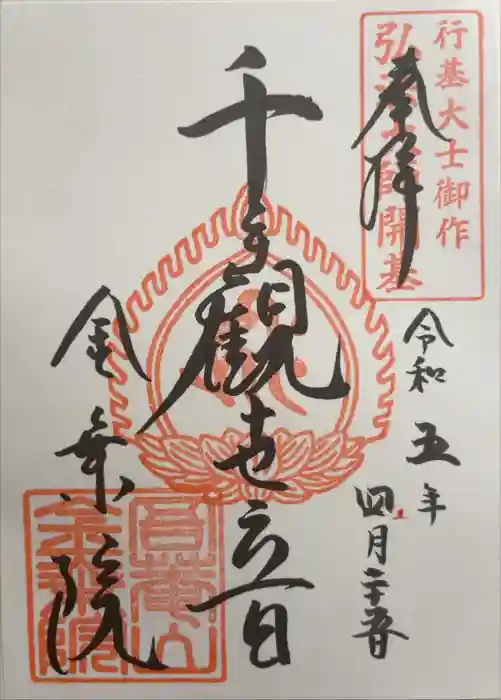 行基大士御作
弘法大師開基
奉拝
令和五年
四月二十
千手観世音
金乗院
吾菴山
金乗院